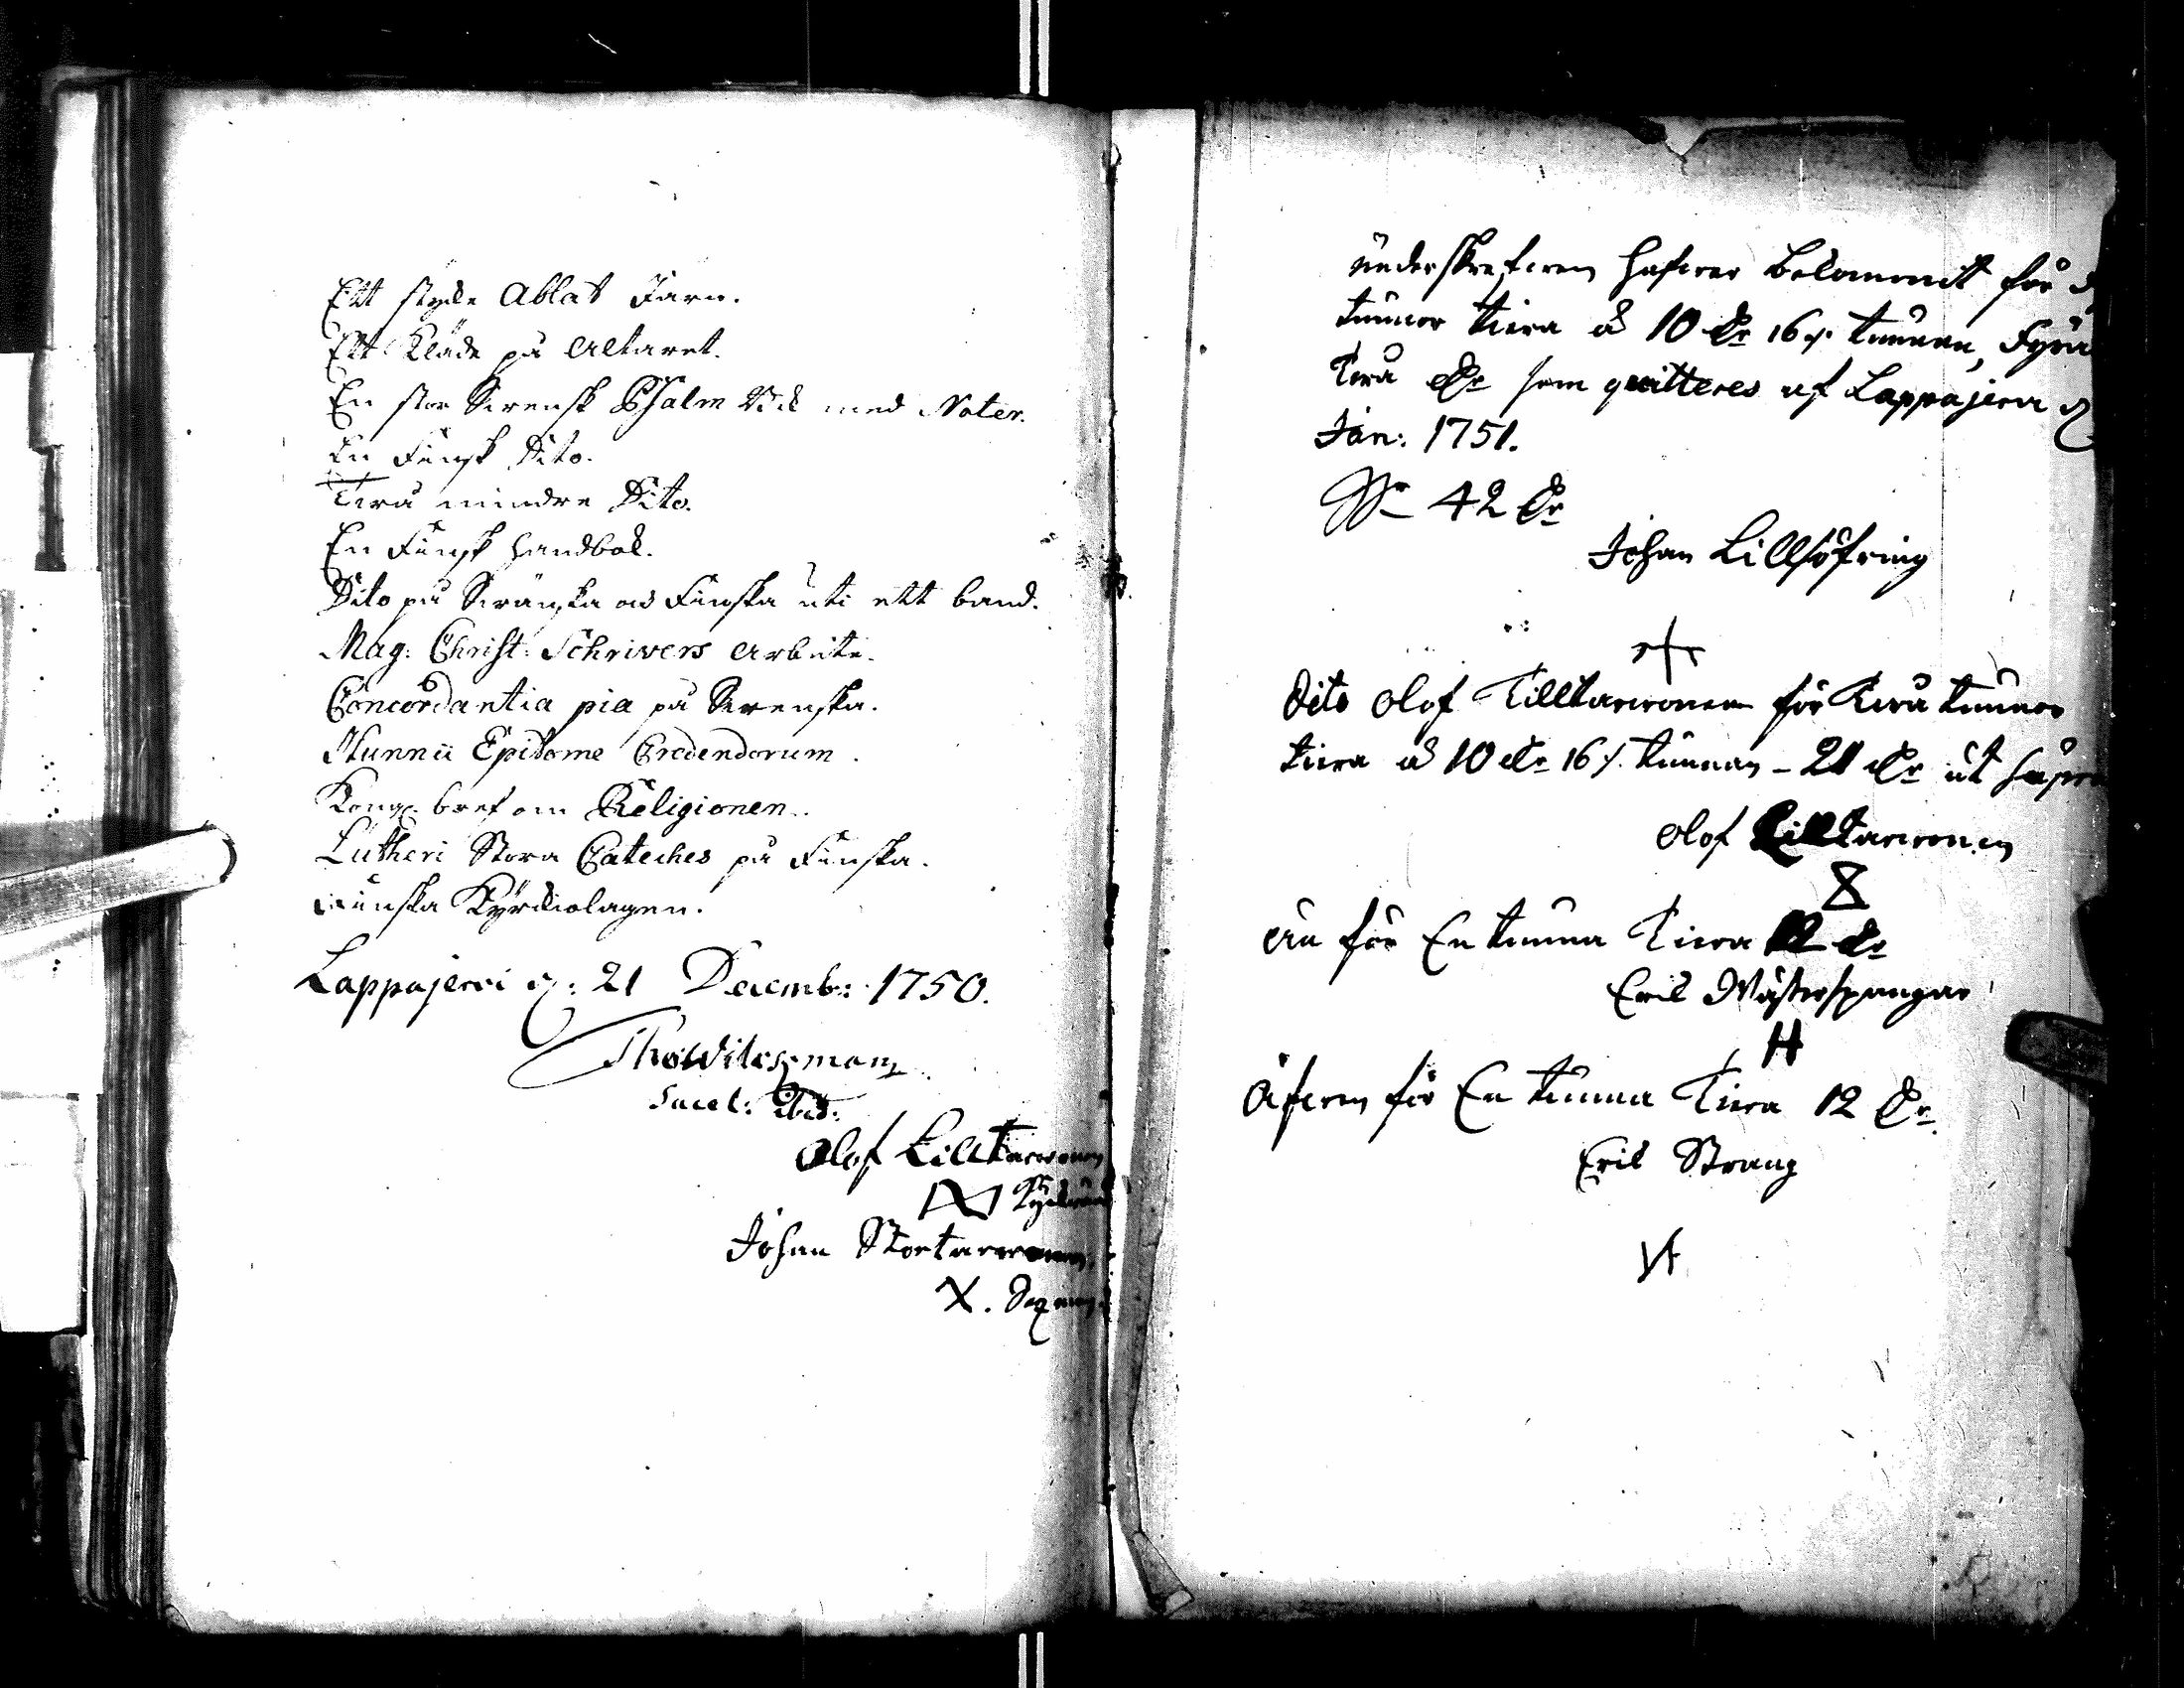 Ett stycke Ablat Jarn.
Ett Kläde på Altaret.
En stor Svensk Psalm Bok med Noter.
En Finsk Dito.
Två mindre Dito.
En Finsk Handbok.
Dito på Svänska och Finska uti ett band.
Mag: Christ: Schrivers Arbete.
Concordantia pia på Svenska.
Hunnii Epitome Credendorum.
Kongl. bref om Religionen.
Lutheri Stora Cateches på Finska.
Finska Kyrkiolagen.
Lappajervi d: 21 Decemb: 1750.
Tho: Wilesman
Sacel: ibid:
Olof Lilltarvonen
Johan Stortarvonen
X.
Underskrefven hafver bekommit för
tunnor tiera à 10 dr 16 s. tunnan, Fyra
Två dr som quitteres af Lappajervi d
Jan: 1751.
Sr 42 dr
Johan Lillsöfring
Dito Olof Lilltarvonen för två tunnor
tiera à 10 dr 16 s. tunnan - 21 dr
Olof Lilltarvonen
för En tunna Tiera 12 dr
Eric Wästerspangar
H
Äfven för En tunna Tiera 12 dr
Eric Strang